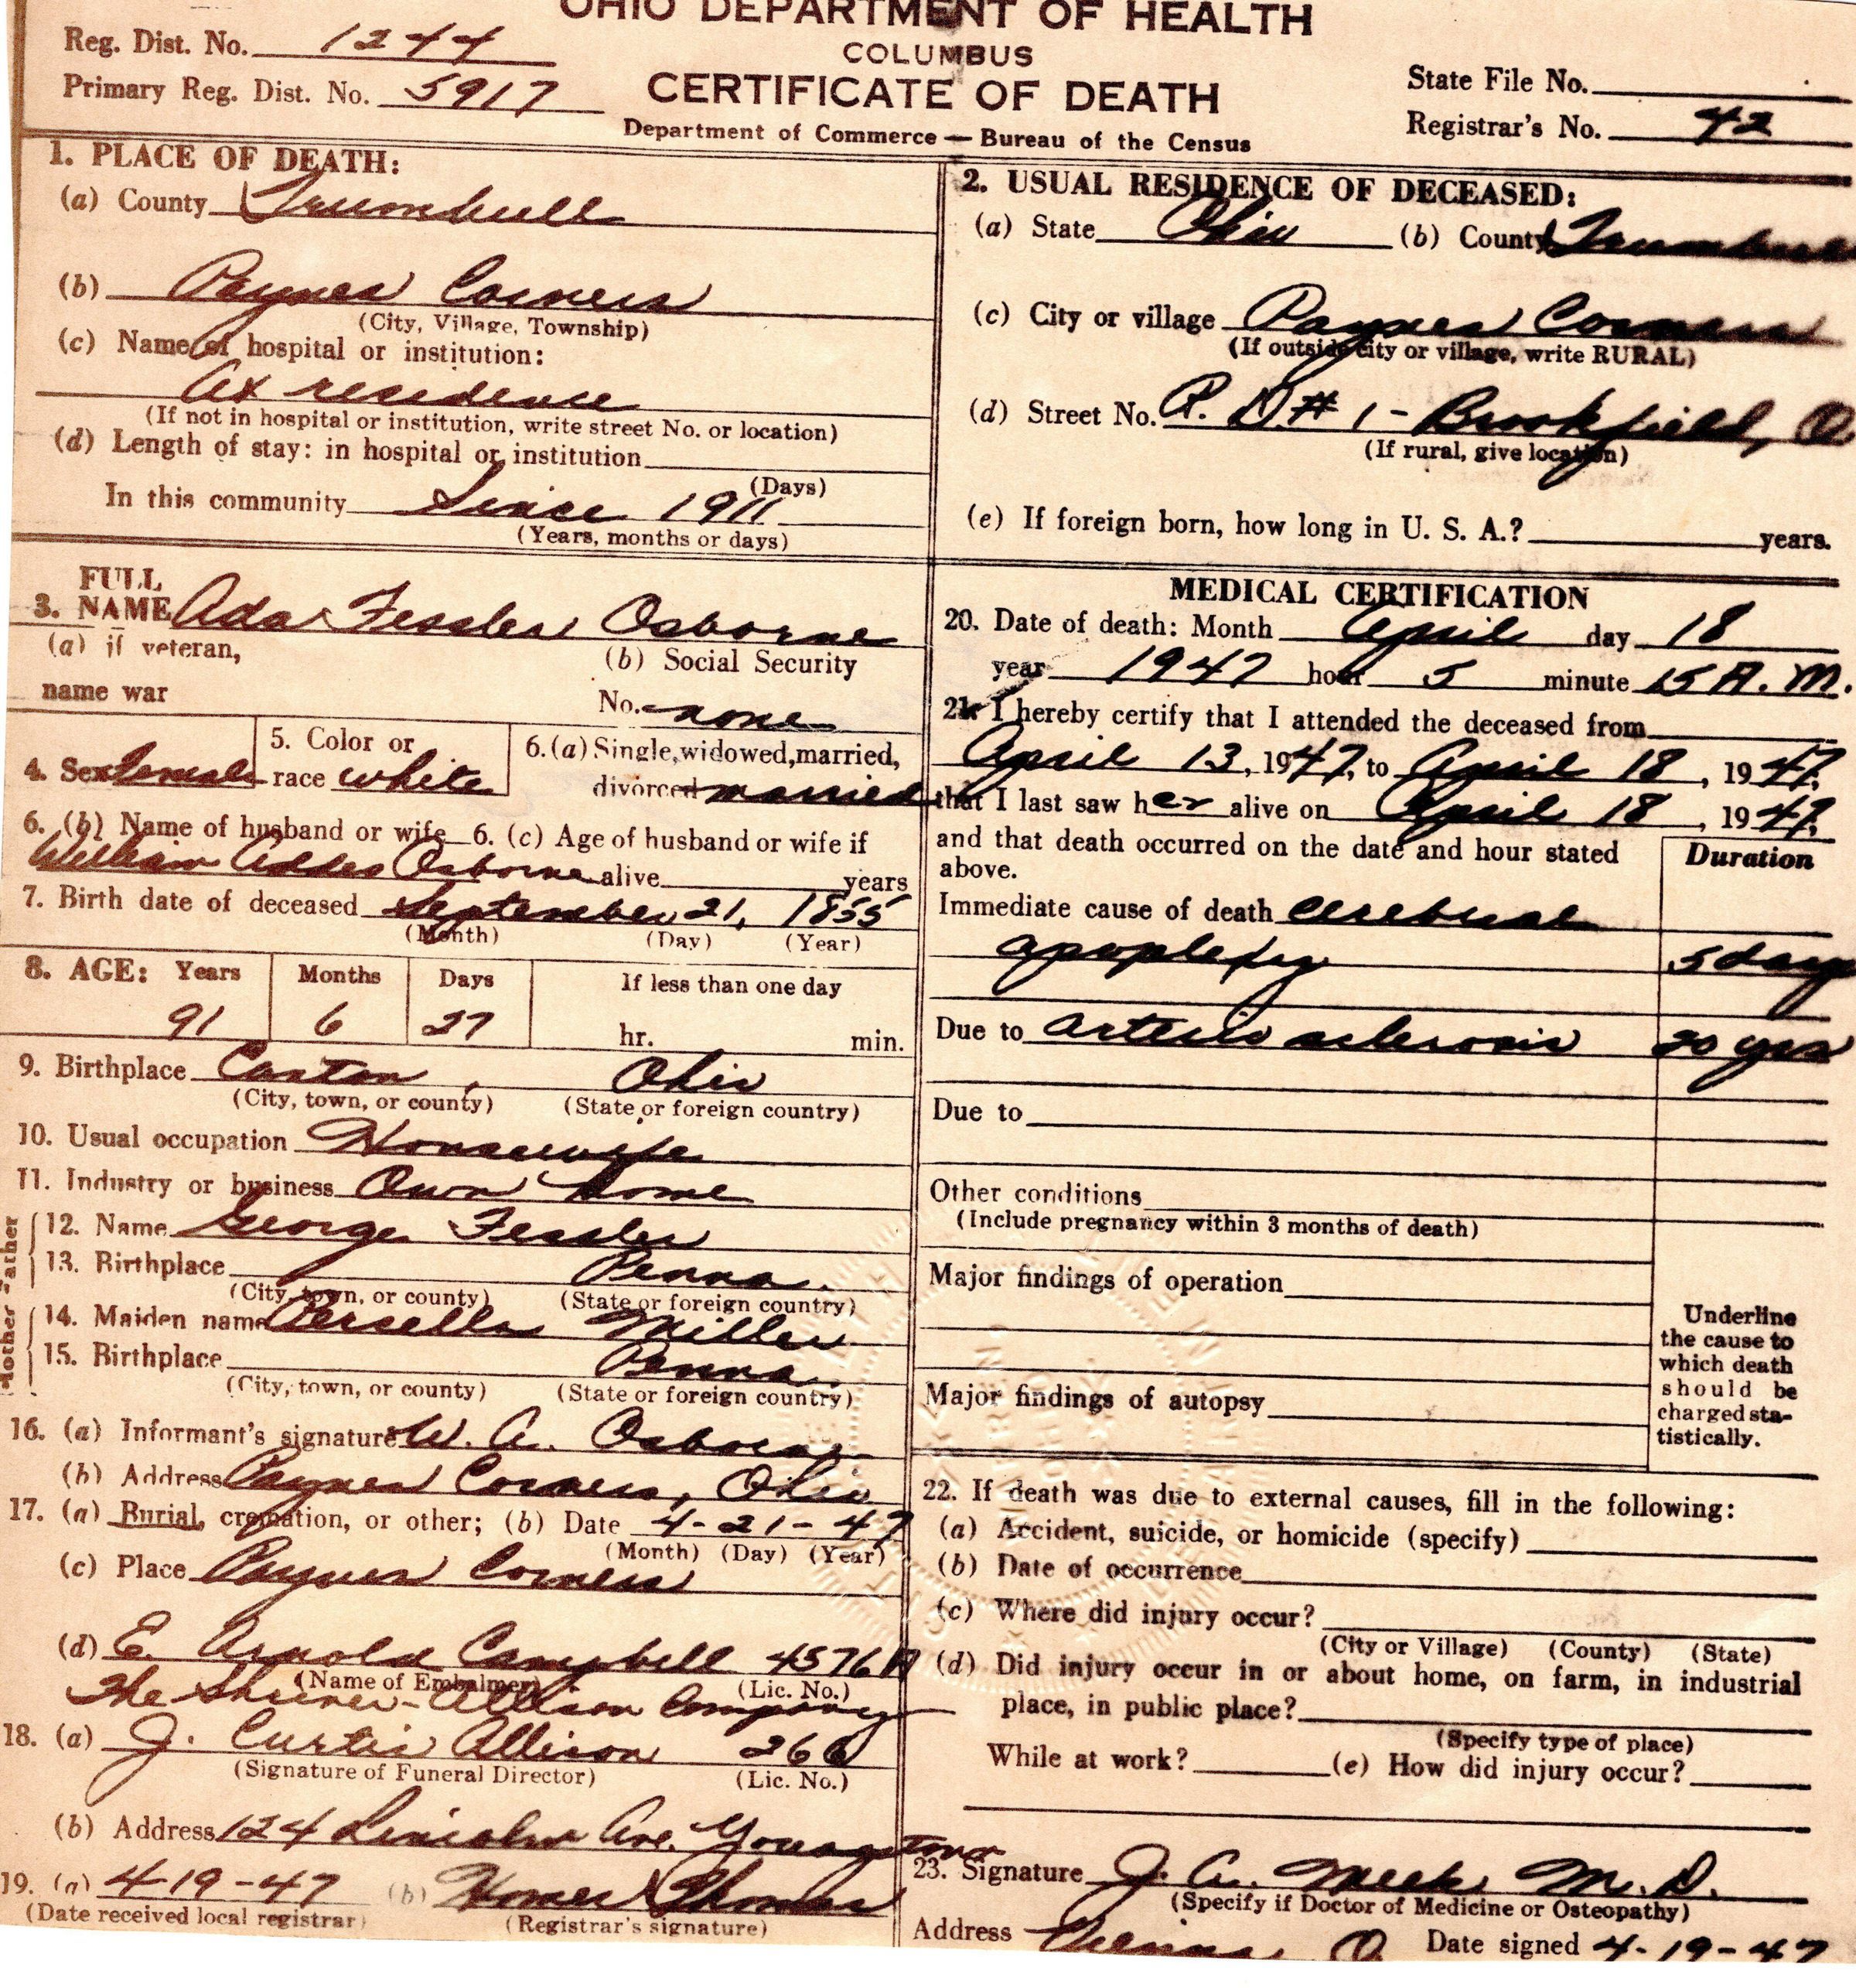 OHIO DEPARTMENT OF HEALTH
COLUMBUS
CERTIFICATE OF DEATH
Department of Commerce — Bureau of the Census
Reg. Dist. No. 1244
Primary Reg. Dist. No. 5917
State File No.
Registrar's No. 42
1. PLACE OF DEATH:
(a) County Trumbull
(b) Paynes Corners
(City, Village, Township)
(c) Name of hospital or institution:
At residence
(If not in hospital or institution, write street No. or location)
(d) Length of stay: in hospital or institution
(Days)
In this community Since 1911
(Years, months or days)
2. USUAL RESIDENCE OF DECEASED:
(a) State Ohio (b) County Trumbull
(c) City or village Paynes Corners
(If outside city or village, write RURAL)
(d) Street No. R. D # 1 - Brookfield, O
(If rural, give location)
(e) If foreign born, how long in U. S. A.? years.
3. FULL NAME Ada Fessler Osborne
(a) if veteran,
name war
(b) Social Security
No. none
4. Sex female
5. Color or
race white
6. (a) Single, widowed, married,
divorced married
6. (b) Name of husband or wife 6. (c) Age of husband or wife if
William Addes Osborne alive years
7. Birth date of deceased September 21, 1855
(Month) (Day) (Year)
8. AGE: Years Months Days If less than one day
91 6 27 hr. min.
9. Birthplace Canton, Ohio
(City, town, or county) (State or foreign country)
10. Usual occupation Housewife
11. Industry or business Own home
Father
12. Name George Fessler
13. Birthplace Penna.
(City, town, or county) (State or foreign country)
Mother
14. Maiden name Persella Miller
15. Birthplace Penna.
(City, town, or county) (State or foreign country)
16. (a) Informant's signature W. A. Osborne
(b) Address Paynes Corners, Ohio
17. (a) Burial, cremation, or other; (b) Date 4-21-47
(Month) (Day) (Year)
(c) Place Paynes Corners
(d) E. Arnold Campbell 4576A
(Name of Embalmer) (Lic. No.)
The Shriver-Allison Company
18. (a) J. Curtis Allison 266
(Signature of Funeral Director) (Lic. No.)
(b) Address 124 Lincoln Ave. Youngstown
19. (a) 4-19-47 (b) Homer Thomas
(Date received local registrar) (Registrar's signature)
MEDICAL CERTIFICATION
20. Date of death: Month April day 18
year 1947 hour 5 minute 15 A. M.
21. I hereby certify that I attended the deceased from
April 13, 1947, to April 18, 1947,
that I last saw her alive on April 18, 1947,
and that death occurred on the date and hour stated
above.
Duration
Immediate cause of death cerebral
apoplexy 5 days
Due to arterio sclerosis 20 yrs
Due to
Other conditions
(Include pregnancy within 3 months of death)
Major findings of operation
Major findings of autopsy
Underline
the cause to
which death
should be
charged sta-
tistically.
22. If death was due to external causes, fill in the following:
(a) Accident, suicide, or homicide (specify)
(b) Date of occurrence
(c) Where did injury occur?
(City or Village) (County) (State)
(d) Did injury occur in or about home, on farm, in industrial
place, in public place?
(Specify type of place)
While at work? (e) How did injury occur?
23. Signature J. A. Meek M. D.
(Specify if Doctor of Medicine or Osteopathy)
Address Vienna, O. Date signed 4-19-47